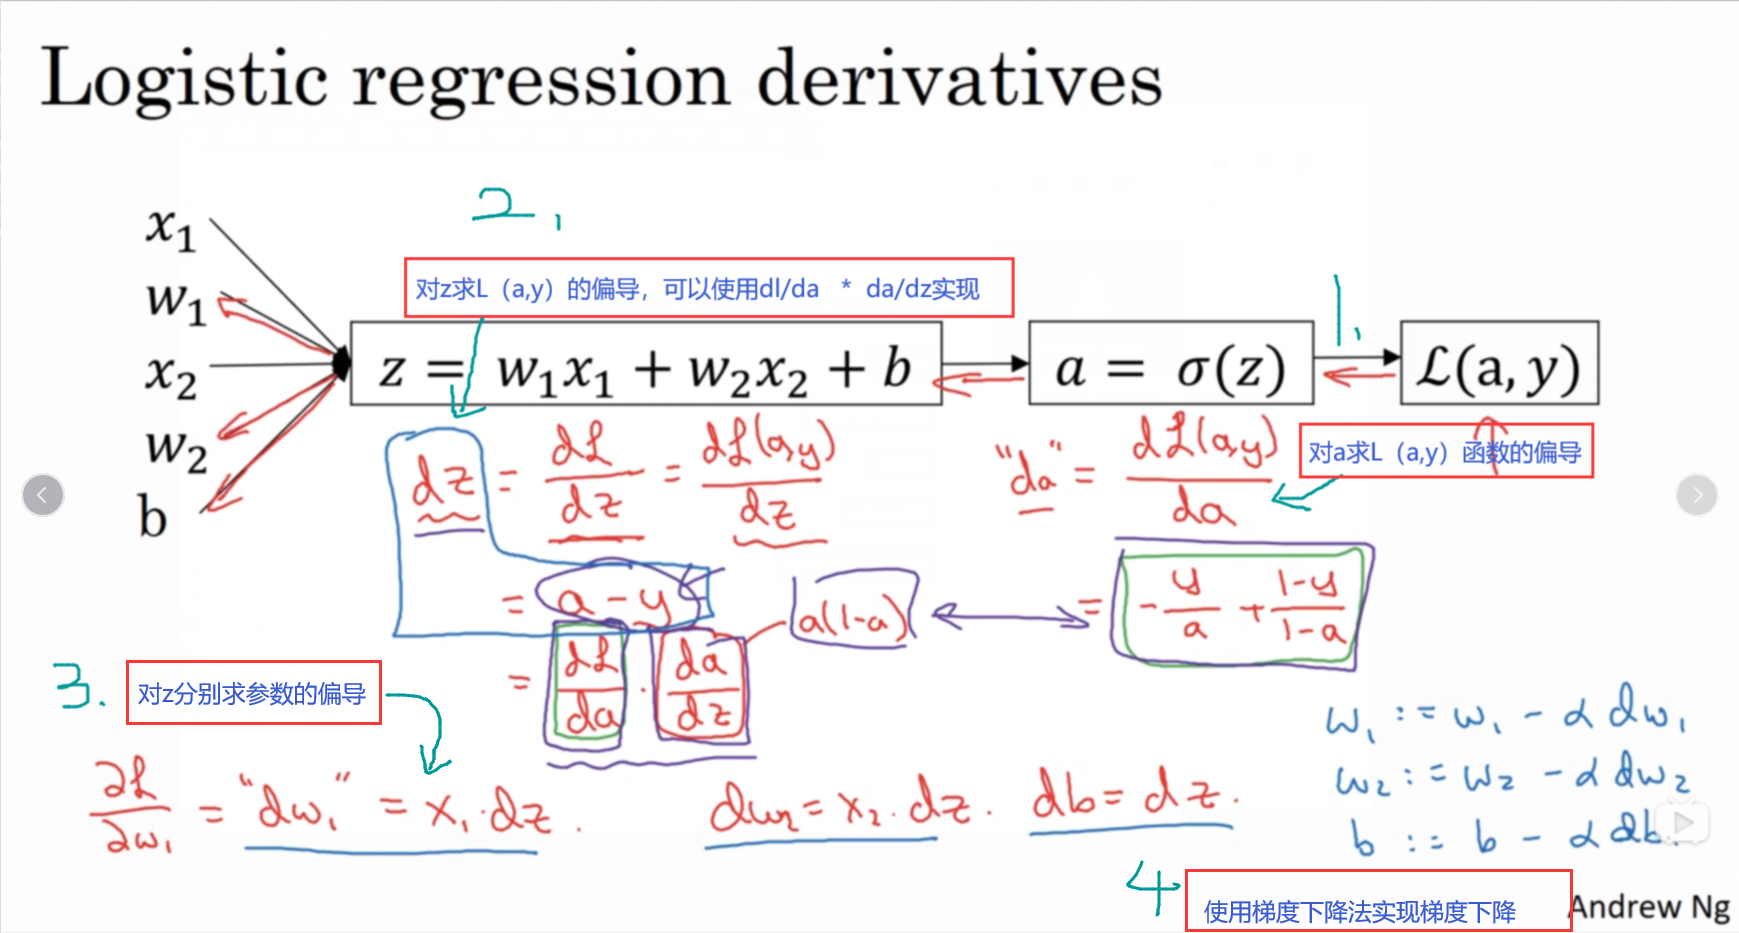 Logistic regression derivatives
2.
1.
x₁
w₁
x₂
w₂
b
对z求L（a,y）的偏导，可以使用dl/da * da/dz实现
z = w₁x₁ + w₂x₂ + b
a = σ(z)
ℒ(a, y)
对a求L（a,y）函数的偏导
dz = dℒ/dz = dℒ(a,y)/dz
"da" = dℒ(a,y)/da
= a - y
a(1-a)
= -y/a + (1-y)/(1-a)
= dℒ/da · da/dz
3.
对z分别求参数的偏导
∂ℒ/∂w₁ = "dw₁" = x₁·dz.
dw₂ = x₂·dz.
db = dz.
w₁ := w₁ - α dw₁
w₂ := w₂ - α dw₂
b := b - α db.
4
使用梯度下降法实现梯度下降
Andrew Ng